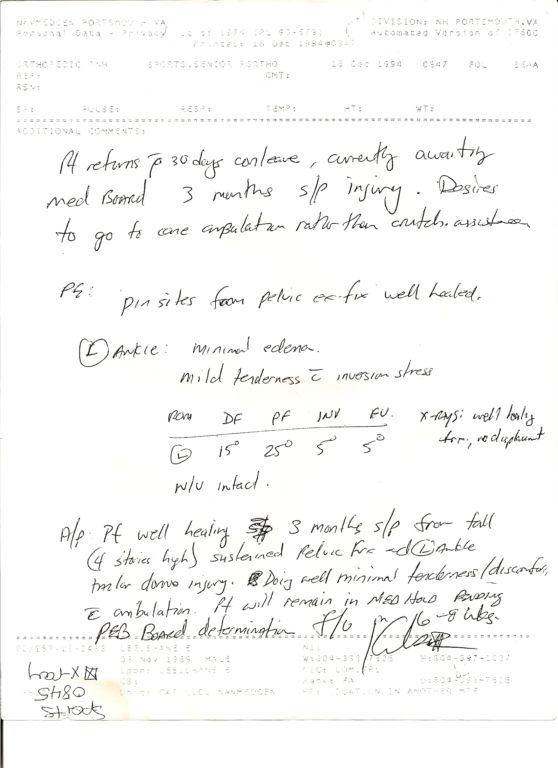 NAVMEDCEN PORTSMOUTH, VA DIVISION: NH PORTSMOUTH, VA
Personal Data - Privacy of 1974 (PL 93-579) Automated Version of
Printed: 16 Dec 1994@0847
ORTHOPEDIC SPORTS,SENIOR PORTHO 16 Dec 1994 0847
REF: CMT:
RSN:
BP: PULSE: RESP: TEMP: HT: WT:
ADDITIONAL COMMENTS:
Pt returns p̄ 30 days conleave, currently awaiting
med Board 3 months s/p injury. Desires
to go to cane ambulation rather than crutch assistance
PE: pin sites from pelvic ex-fix well healed.
Ⓛ Ankle: minimal edema.
mild tenderness c̄ inversion stress
ROM DF PF INV EV. X-rays: well healing
Ⓛ 15° 25° 5° 5° no displacement
N/V intact.
A/P: Pt well healing 3 months s/p from fall
(4 stories high) sustained Pelvic Frx Ⓛ Ankle
talar dome injury. Doing well minimal tenderness/discomfort
c̄ ambulation. Pt will remain in Med Hold Pending
PEB Board determination F/U in 6-8 wks.
LOCATION IN ANOTHER MTF
X-ray
Sports